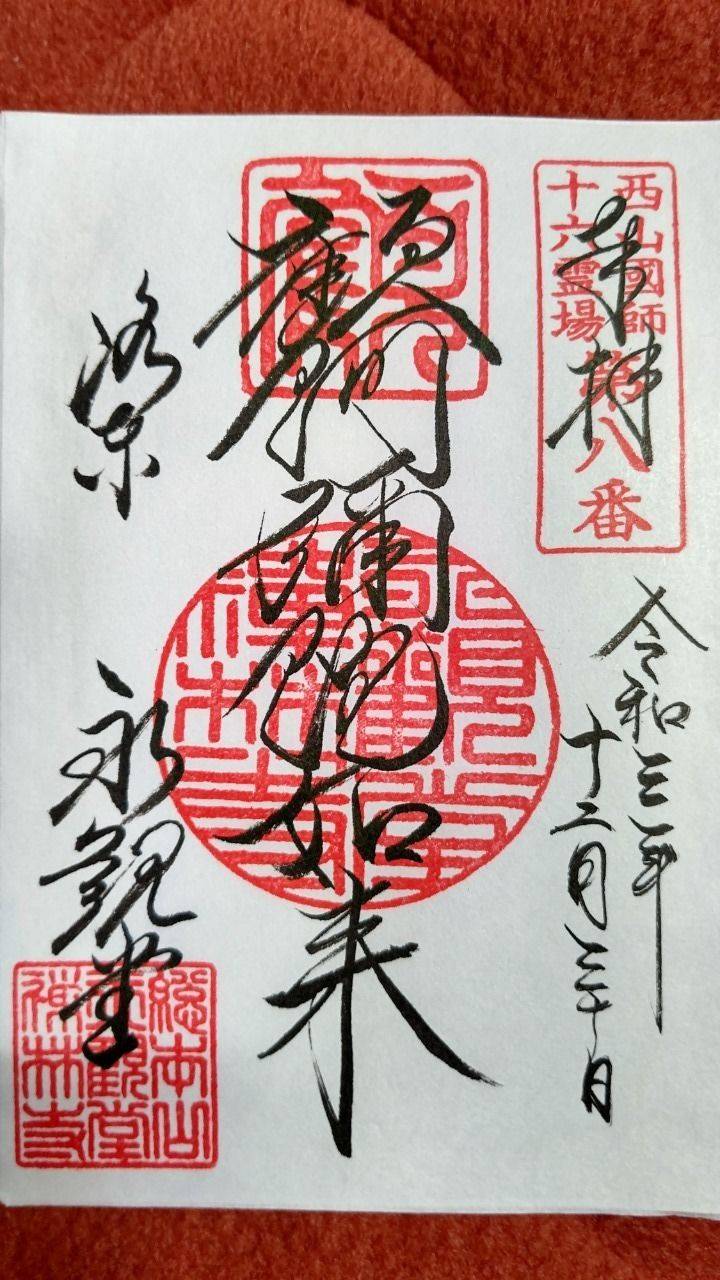 西山國師
十六霊場
第八番
奉拝
令和三年
十二月三十日
顧阿彌陀如来
洛東
永觀堂
総本山
永觀堂
禅林寺